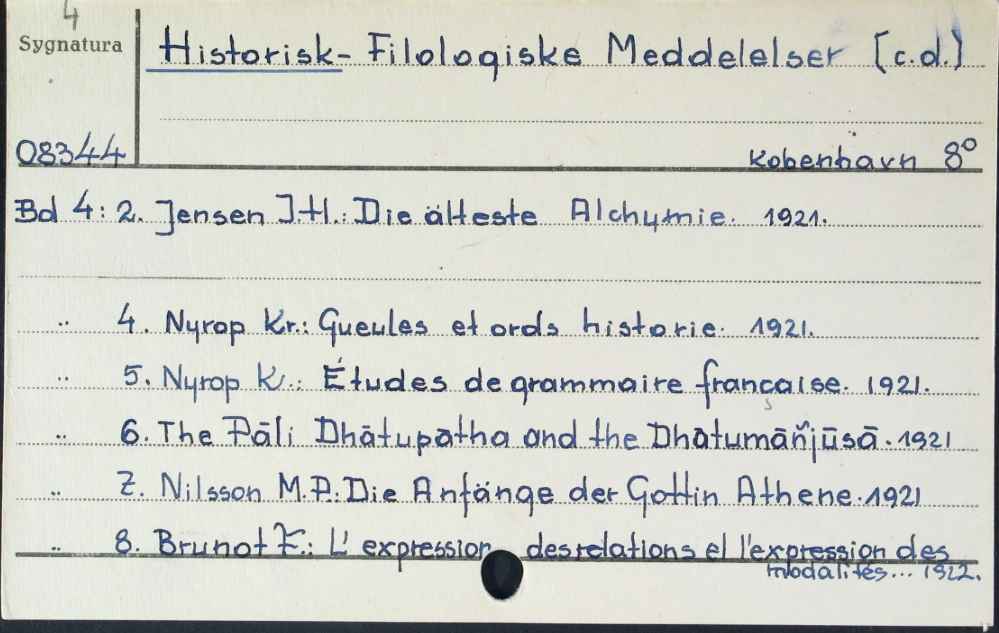 4
Sygnatura
Historisk-Filologiske Meddelelser (c.d.)
08344
Kobenhavn 8°
Bd 4: 2. Jensen J.H.: Die älteste Alchymie. 1921.
.. 4. Nyrop Kr.: Gueules et ords historie. 1921.
.. 5. Nyrop K.: Études de grammaire française. 1921.
.. 6. The Pāli Dhātupatha and the Dhatumāňjūsā. 1921
.. 7. Nilsson M.P. Die Anfänge der Gottin Athene. 1921
.. 8. Brunot F.: L'expression des relations et l'expression des
modalités... 1922.